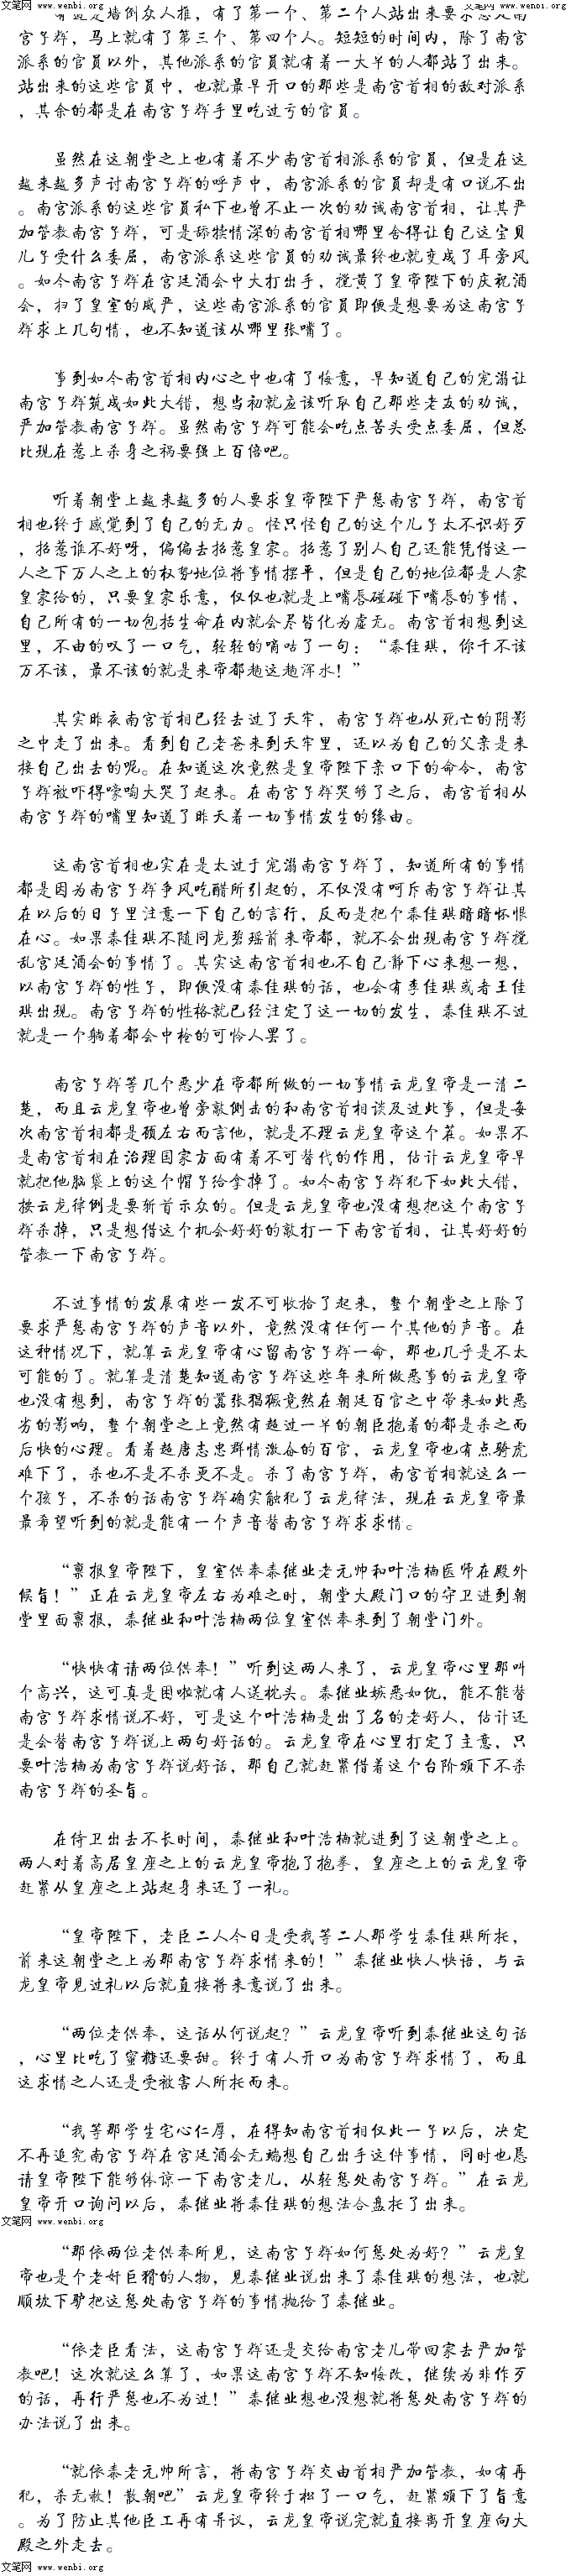 文笔网 www.wenbi.org 文笔网 www.wenbi.org
有道是墙倒众人推，有了第一个、第二个人站出来要求惩处南
宫子辉，马上就有了第三个、第四个人。短短的时间内，除了南宫
派系的官员以外，其他派系的官员就有着一大半的人都站了出来。
站出来的这些官员中，也就最早开口的那些是南宫首相的敌对派系
，其余的都是在南宫子辉手里吃过亏的官员。
虽然在这朝堂之上也有着不少南宫首相派系的官员，但是在这
越来越多声讨南宫子辉的呼声中，南宫派系的官员却是有口说不出
。南宫派系的这些官员私下也曾不止一次的劝诫南宫首相，让其严
加管教南宫子辉，可是舔犊情深的南宫首相哪里舍得让自己这宝贝
儿子受什么委屈，南宫派系这些官员的劝诫最终也就变成了耳旁风
。如今南宫子辉在宫廷酒会中大打出手，搅黄了皇帝陛下的庆祝酒
会，扫了皇室的威严，这些南宫派系的官员即便是想要为这南宫子
辉求上几句情，也不知道该从哪里张嘴了。
事到如今南宫首相内心之中也有了悔意，早知道自己的宠溺让
南宫子辉筑成如此大错，想当初就应该听取自己那些老友的劝诫，
严加管教南宫子辉。虽然南宫子辉可能会吃点苦头受点委屈，但总
比现在惹上杀身之祸要强上百倍吧。
听着朝堂上越来越多的人要求皇帝陛下严惩南宫子辉，南宫首
相也终于感觉到了自己的无力。怪只怪自己的这个儿子太不识好歹
，招惹谁不好呀，偏偏去招惹皇家。招惹了别人自己还能凭借这一
人之下万人之上的权势地位将事情摆平，但是自己的地位都是人家
皇家给的，只要皇家乐意，仅仅也就是上嘴唇碰碰下嘴唇的事情，
自己所有的一切包括生命在内就会尽皆化为虚无。南宫首相想到这
里，不由的叹了一口气，轻轻的嘀咕了一句：“秦佳琪，你千不该
万不该，最不该的就是来帝都趟这趟浑水！”
其实昨夜南宫首相已经去过了天牢，南宫子辉也从死亡的阴影
之中走了出来。看到自己老爸来到天牢里，还以为自己的父亲是来
接自己出去的呢。在知道这次竟然是皇帝陛下亲口下的命令，南宫
子辉被吓得嚎啕大哭了起来。在南宫子辉哭够了之后，南宫首相从
南宫子辉的嘴里知道了昨天着一切事情发生的缘由。
这南宫首相也实在是太过于宠溺南宫子辉了，知道所有的事情
都是因为南宫子辉争风吃醋所引起的，不仅没有呵斥南宫子辉让其
在以后的日子里注意一下自己的言行，反而是把个秦佳琪暗暗怀恨
在心。如果秦佳琪不随同龙碧瑶前来帝都，就不会出现南宫子辉搅
乱宫廷酒会的事情了。其实这南宫首相也不自己静下心来想一想，
以南宫子辉的性子，即便没有秦佳琪的话，也会有李佳琪或者王佳
琪出现。南宫子辉的性格就已经注定了这一切的发生，秦佳琪不过
就是一个躺着都会中枪的可怜人罢了。
南宫子辉等几个恶少在帝都所做的一切事情云龙皇帝是一清二
楚，而且云龙皇帝也曾旁敲侧击的和南宫首相谈及过此事，但是每
次南宫首相都是顾左右而言他，就是不理云龙皇帝这个茬。如果不
是南宫首相在治理国家方面有着不可替代的作用，估计云龙皇帝早
就把他脑袋上的这个帽子给拿掉了。如今南宫子辉犯下如此大错，
按云龙律例是要斩首示众的。但是云龙皇帝也没有想把这个南宫子
辉杀掉，只是想借这个机会好好的敲打一下南宫首相，让其好好的
管教一下南宫子辉。
不过事情的发展有些一发不可收拾了起来，整个朝堂之上除了
要求严惩南宫子辉的声音以外，竟然没有任何一个其他的声音。在
这种情况下，就算云龙皇帝有心留南宫子辉一命，那也几乎是不太
可能的了。就算是清楚知道南宫子辉这些年来所做恶事的云龙皇帝
也没有想到，南宫子辉的嚣张猖獗竟然在朝廷百官之中带来如此恶
劣的影响，整个朝堂之上竟然有超过一半的朝臣抱着的都是杀之而
后快的心理。看着赵唐志忠群情激奋的百官，云龙皇帝也有点骑虎
难下了，杀也不是不杀更不是。杀了南宫子辉，南宫首相就这么一
个孩子，不杀的话南宫子辉确实触犯了云龙律法，现在云龙皇帝最
最希望听到的就是能有一个声音替南宫子辉求求情。
“禀报皇帝陛下，皇室供奉秦继业老元帅和叶浩楠医师在殿外
候旨！”正在云龙皇帝左右为难之时，朝堂大殿门口的守卫进到朝
堂里面禀报，秦继业和叶浩楠两位皇室供奉来到了朝堂门外。
“快快有请两位供奉！”听到这两人来了，云龙皇帝心里那叫
个高兴，这可真是困啦就有人送枕头。秦继业嫉恶如仇，能不能替
南宫子辉求情说不好，可是这个叶浩楠是出了名的老好人，估计还
是会替南宫子辉说上两句好话的。云龙皇帝在心里打定了主意，只
要叶浩楠为南宫子辉说好话，那自己就赶紧借着这个台阶颁下不杀
南宫子辉的圣旨。
在侍卫出去不长时间，秦继业和叶浩楠就进到了这朝堂之上。
两人对着高居皇座之上的云龙皇帝抱了抱拳，皇座之上的云龙皇帝
赶紧从皇座之上站起身来还了一礼。
“皇帝陛下，老臣二人今日是受我等二人那学生秦佳琪所托，
前来这朝堂之上为那南宫子辉求情来的！”秦继业快人快语，与云
龙皇帝见过礼以后就直接将来意说了出来。
“两位老供奉，这话从何说起？”云龙皇帝听到秦继业这句话
，心里比吃了蜜糖还要甜。终于有人开口为南宫子辉求情了，而且
这求情之人还是受被害人所托而来。
“我等那学生宅心仁厚，在得知南宫首相仅此一子以后，决定
不再追究南宫子辉在宫廷酒会无端想自己出手这件事情，同时也恳
请皇帝陛下能够体谅一下南宫老儿，从轻惩处南宫子辉。”在云龙
皇帝开口询问以后，秦继业将秦佳琪的想法合盘托了出来。
文笔网 www.wenbi.org 文笔网 www.wenbi.org
“那依两位老供奉所见，这南宫子辉如何惩处为好？”云龙皇
帝也是个老奸巨猾的人物，见秦继业说出来了秦佳琪的想法，也就
顺坎下驴把这惩处南宫子辉的事情抛给了秦继业。
“依老臣看法，这南宫子辉还是交给南宫老儿带回家去严加管
教吧！这次就这么算了，如果这南宫子辉不知悔改，继续为非作歹
的话，再行严惩也不为过！”秦继业想也没想就将惩处南宫子辉的
办法说了出来。
“就依秦老元帅所言，将南宫子辉交由首相严加管教，如有再
犯，杀无赦！散朝吧”云龙皇帝终于松了一口气，赶紧颁下了旨意
。为了防止其他臣工再有异议，云龙皇帝说完就直接离开皇座向大
殿之外走去。
文笔网 www.wenbi.org